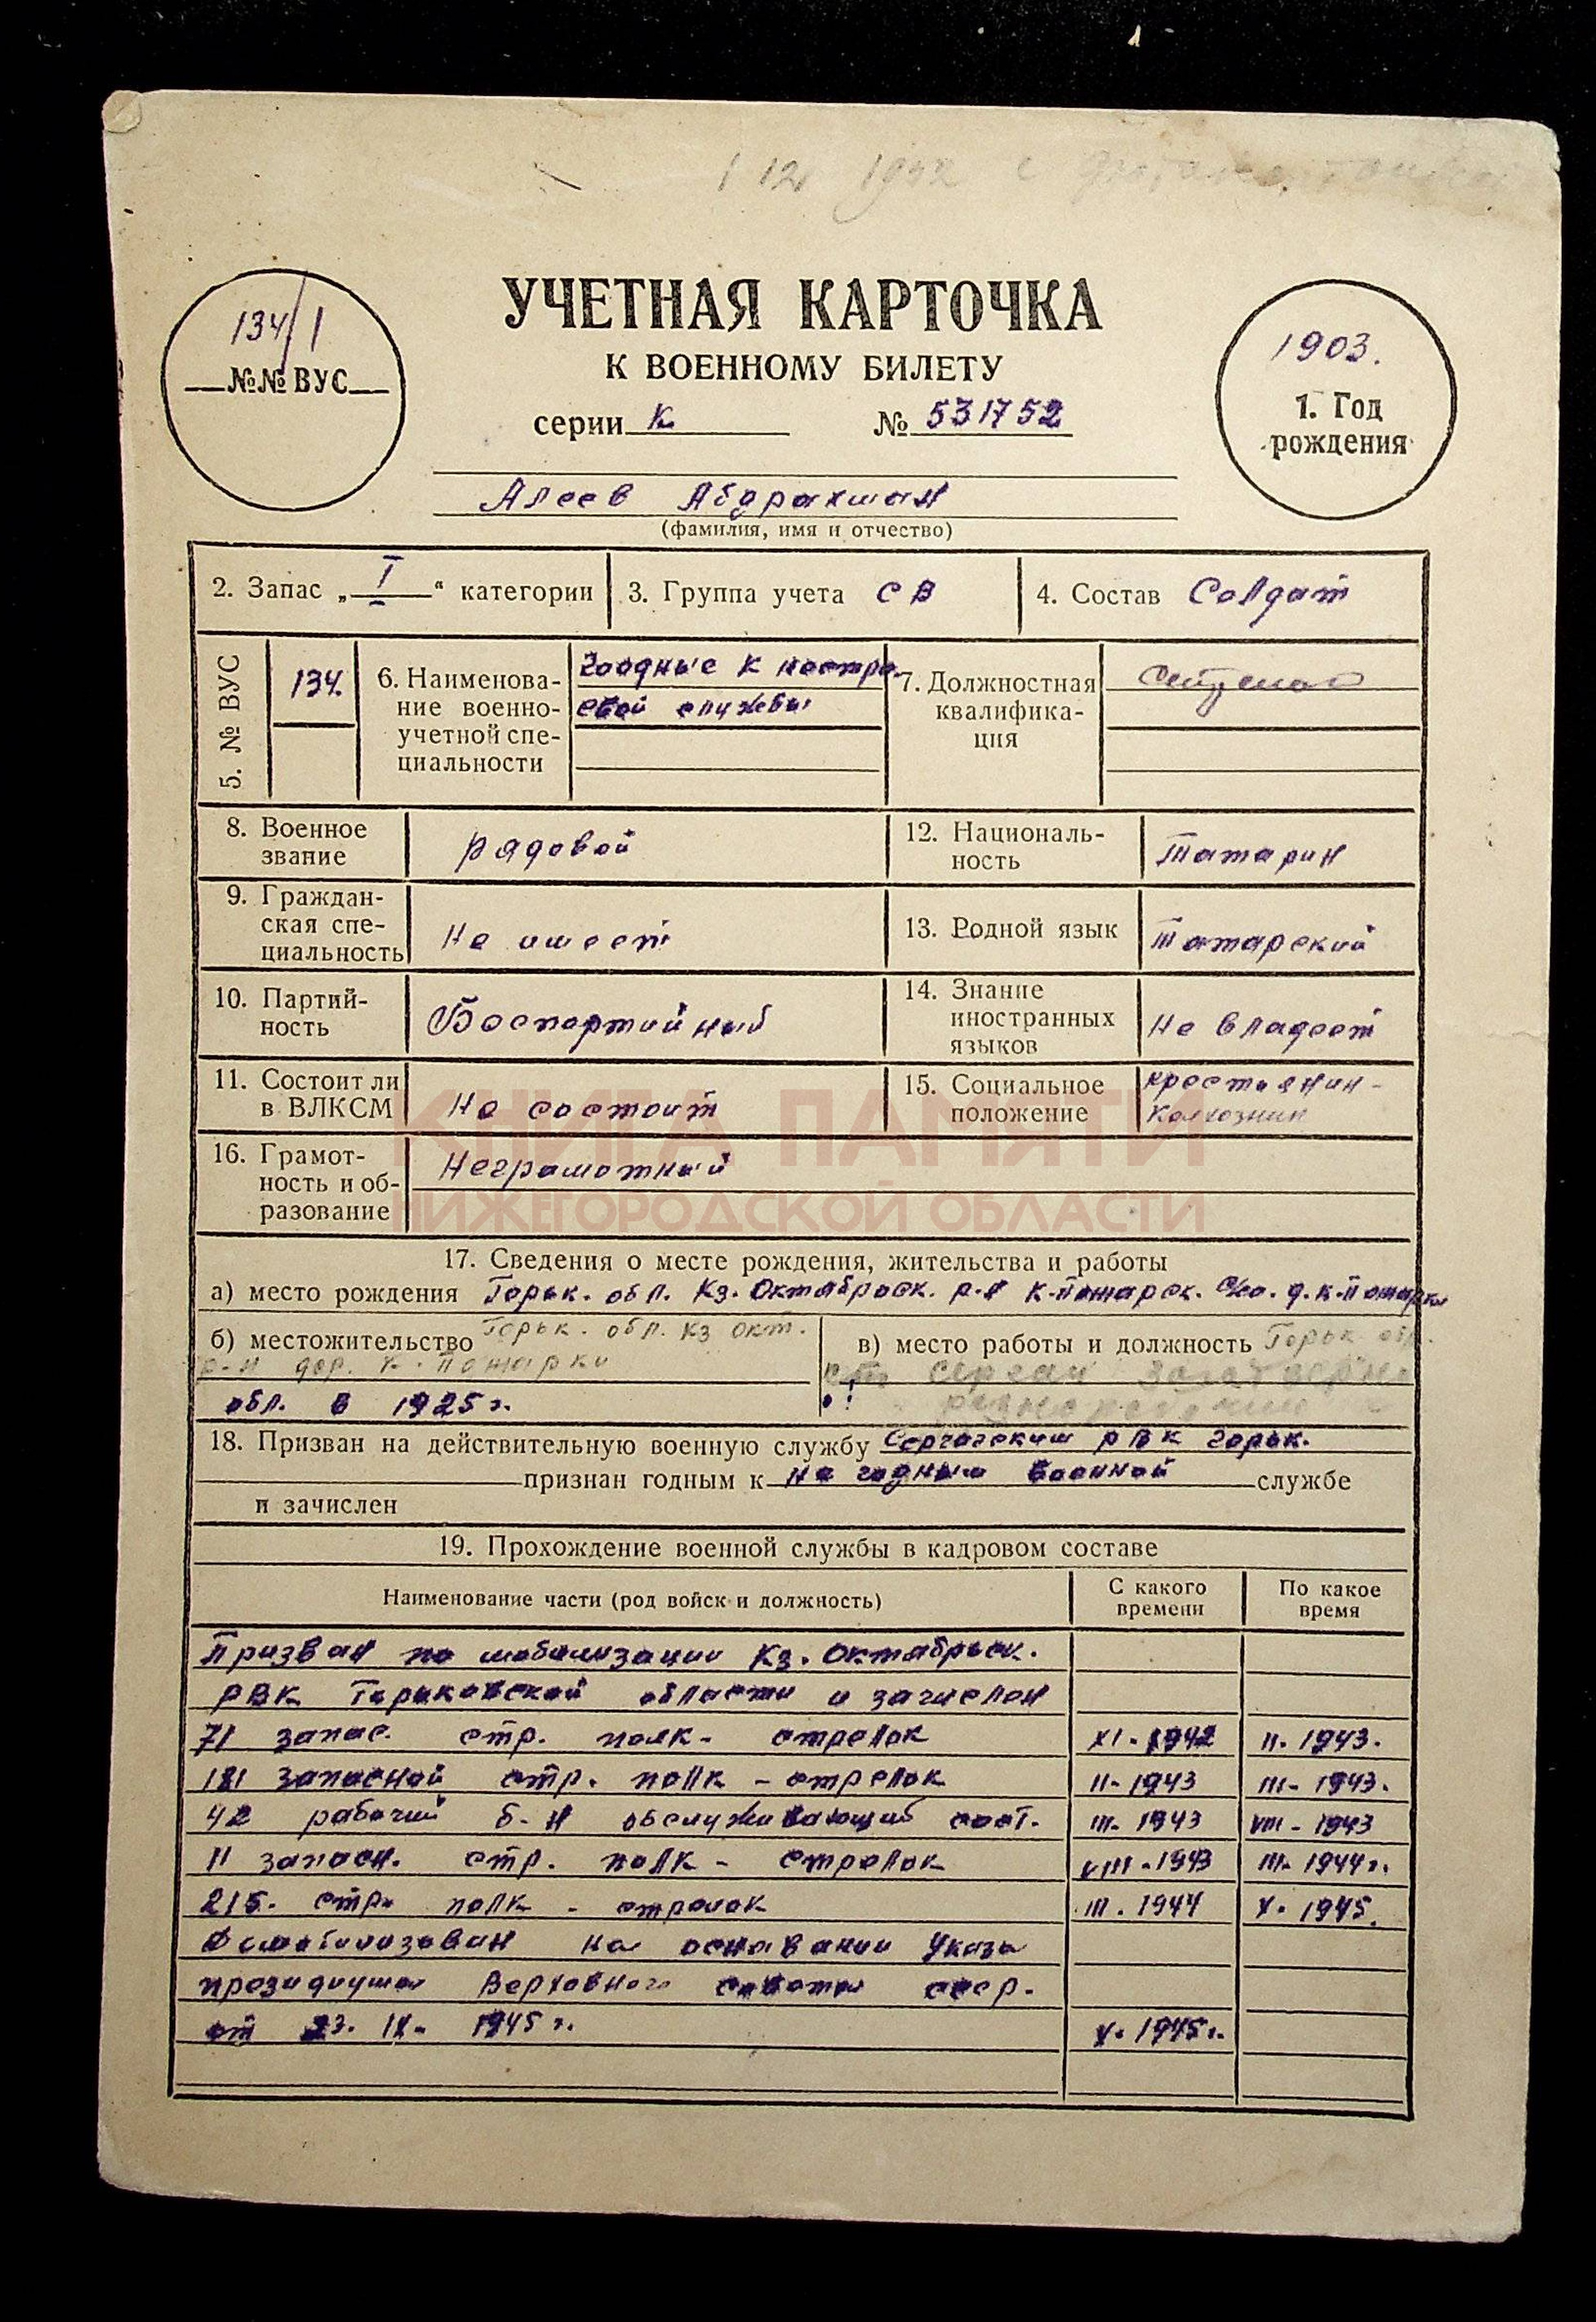 1 12 1942 с
134/1
№№ ВУС
УЧЕТНАЯ КАРТОЧКА
К ВОЕННОМУ БИЛЕТУ
серии К № 531752
1903.
1. Год
рождения
Алеев Абдрахман
(фамилия, имя и отчество)
2. Запас „ I “ категории
3. Группа учета СВ
4. Состав Солдат
5. № ВУС
134.
6. Наименова-
ние военно-
учетной спе-
циальности
Годные к нестро
евой службы
7. Должностная
квалифика-
ция
8. Военное
звание
рядовой
12. Националь-
ность
Татарин
9. Граждан-
ская спе-
циальность
Не имеет
13. Родной язык
Татарский
10. Партий-
ность
Беспартийный
14. Знание
иностранных
языков
Не владеет
11. Состоит ли
в ВЛКСМ
Не состоит
15. Социальное
положение
крестьянин-
колхозник
16. Грамот-
ность и об-
разование
Неграмотный
КНИГА ПАМЯТИ
НИЖЕГОРОДСКОЙ ОБЛАСТИ
17. Сведения о месте рождения, жительства и работы
а) место рождения Горьк. обл. Кз. Октябрьск. р-н К-Пожарск. с/со. д. К-Пожарки
б) местожительство Горьк. обл. Кз Окт.
р-н дер. К-Пожарки
в) место работы и должность Горьк обл.
ст Сергач Заготзерно
обл. в 1925 г.
18. Призван на действительную военную службу Сергачским РВК Горьк.
признан годным к не годным военной службе
и зачислен
19. Прохождение военной службы в кадровом составе
Наименование части (род войск и должность)
С какого
времени
По какое
время
Призван по мобилизации Кз. Октябрьск.
РВК Горьковской области и зачислен
71 запас. стр. полк - стрелок XI-1942 II-1943.
181 запасной стр. полк - стрелок II-1943 III-1943.
42 рабочий б-н обслуживающий сост. III-1943 VIII-1943
11 запасн. стр. полк - стрелок VIII-1943 III-1944 г.
215. стр. полк - стрелок III.1944 X-1945.
Демобилизован на основании Указа
президиума Верховного совета ссср.
от 23. IX- 1945 г. X-1945 г.